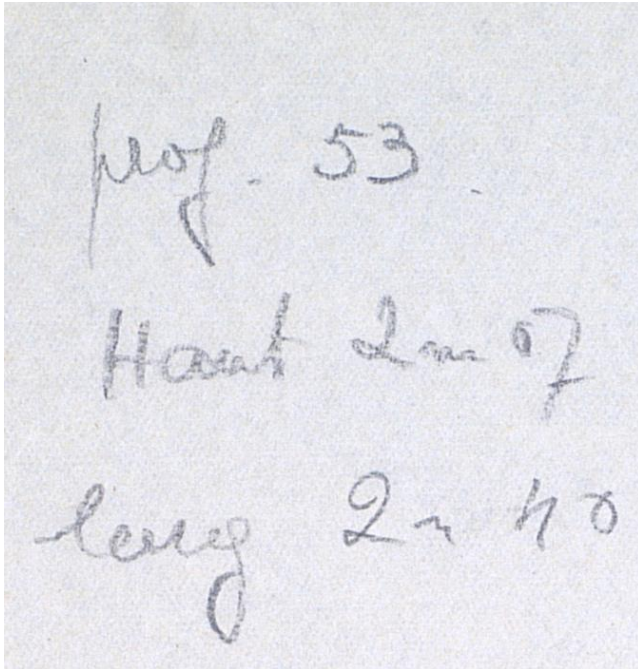 prof. 53.
Haut 2m 07
larg 2m 40